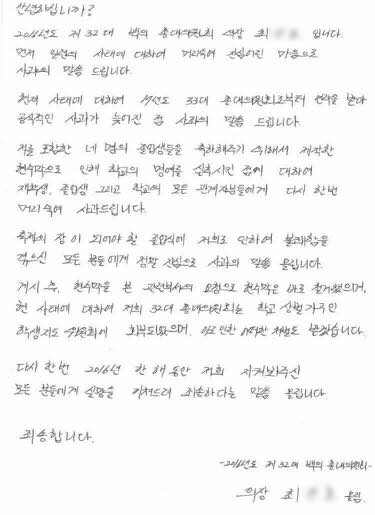 안녕하십니까?
2016년도 제 32대 백의 총대의원회 의장 최 입니다.
먼저 일련의 사태에 대하여 머리숙여 진심어린 마음으로
사과의 말씀 드립니다.
현재 사태에 대하여 17년도 33대 총대의원회로부터 연락을 받아
공식적인 사과가 늦어진 점 사과의 말씀 드립니다.
저를 포함한 네 명의 졸업생들을 축하해주기 위해서 제작한
현수막으로 인해 학교의 명예를 실추시킨 점에 대하여
재학생, 졸업생 그리고 학교의 모든 관계자분들에게 다시 한번
머리숙여 사과드립니다.
축제의 장이 되어야 할 졸업식에 저희로 인하여 불쾌함을
겪으신 모든 분들에게 정말 진심으로 사과의 말씀 올립니다.
게시 즉, 현수막을 본 관련부서의 요청으로 현수막은 바로 철거했으며,
현 사태에 대하여 저희 32대 총대의원회는 학교 상벌기구인
학생지도 위원회에 회부되었으며, 이로 인한 어떠한 처벌도 받겠습니다.
다시 한번 2016년 한 해 동안 저희 지켜봐주신
모든 분들에게 실망을 끼쳐드려 죄송하다는 말씀 올립니다
죄송합니다.
-2016년도 제 32대 백의 총대의원회-
의장 최 올림.